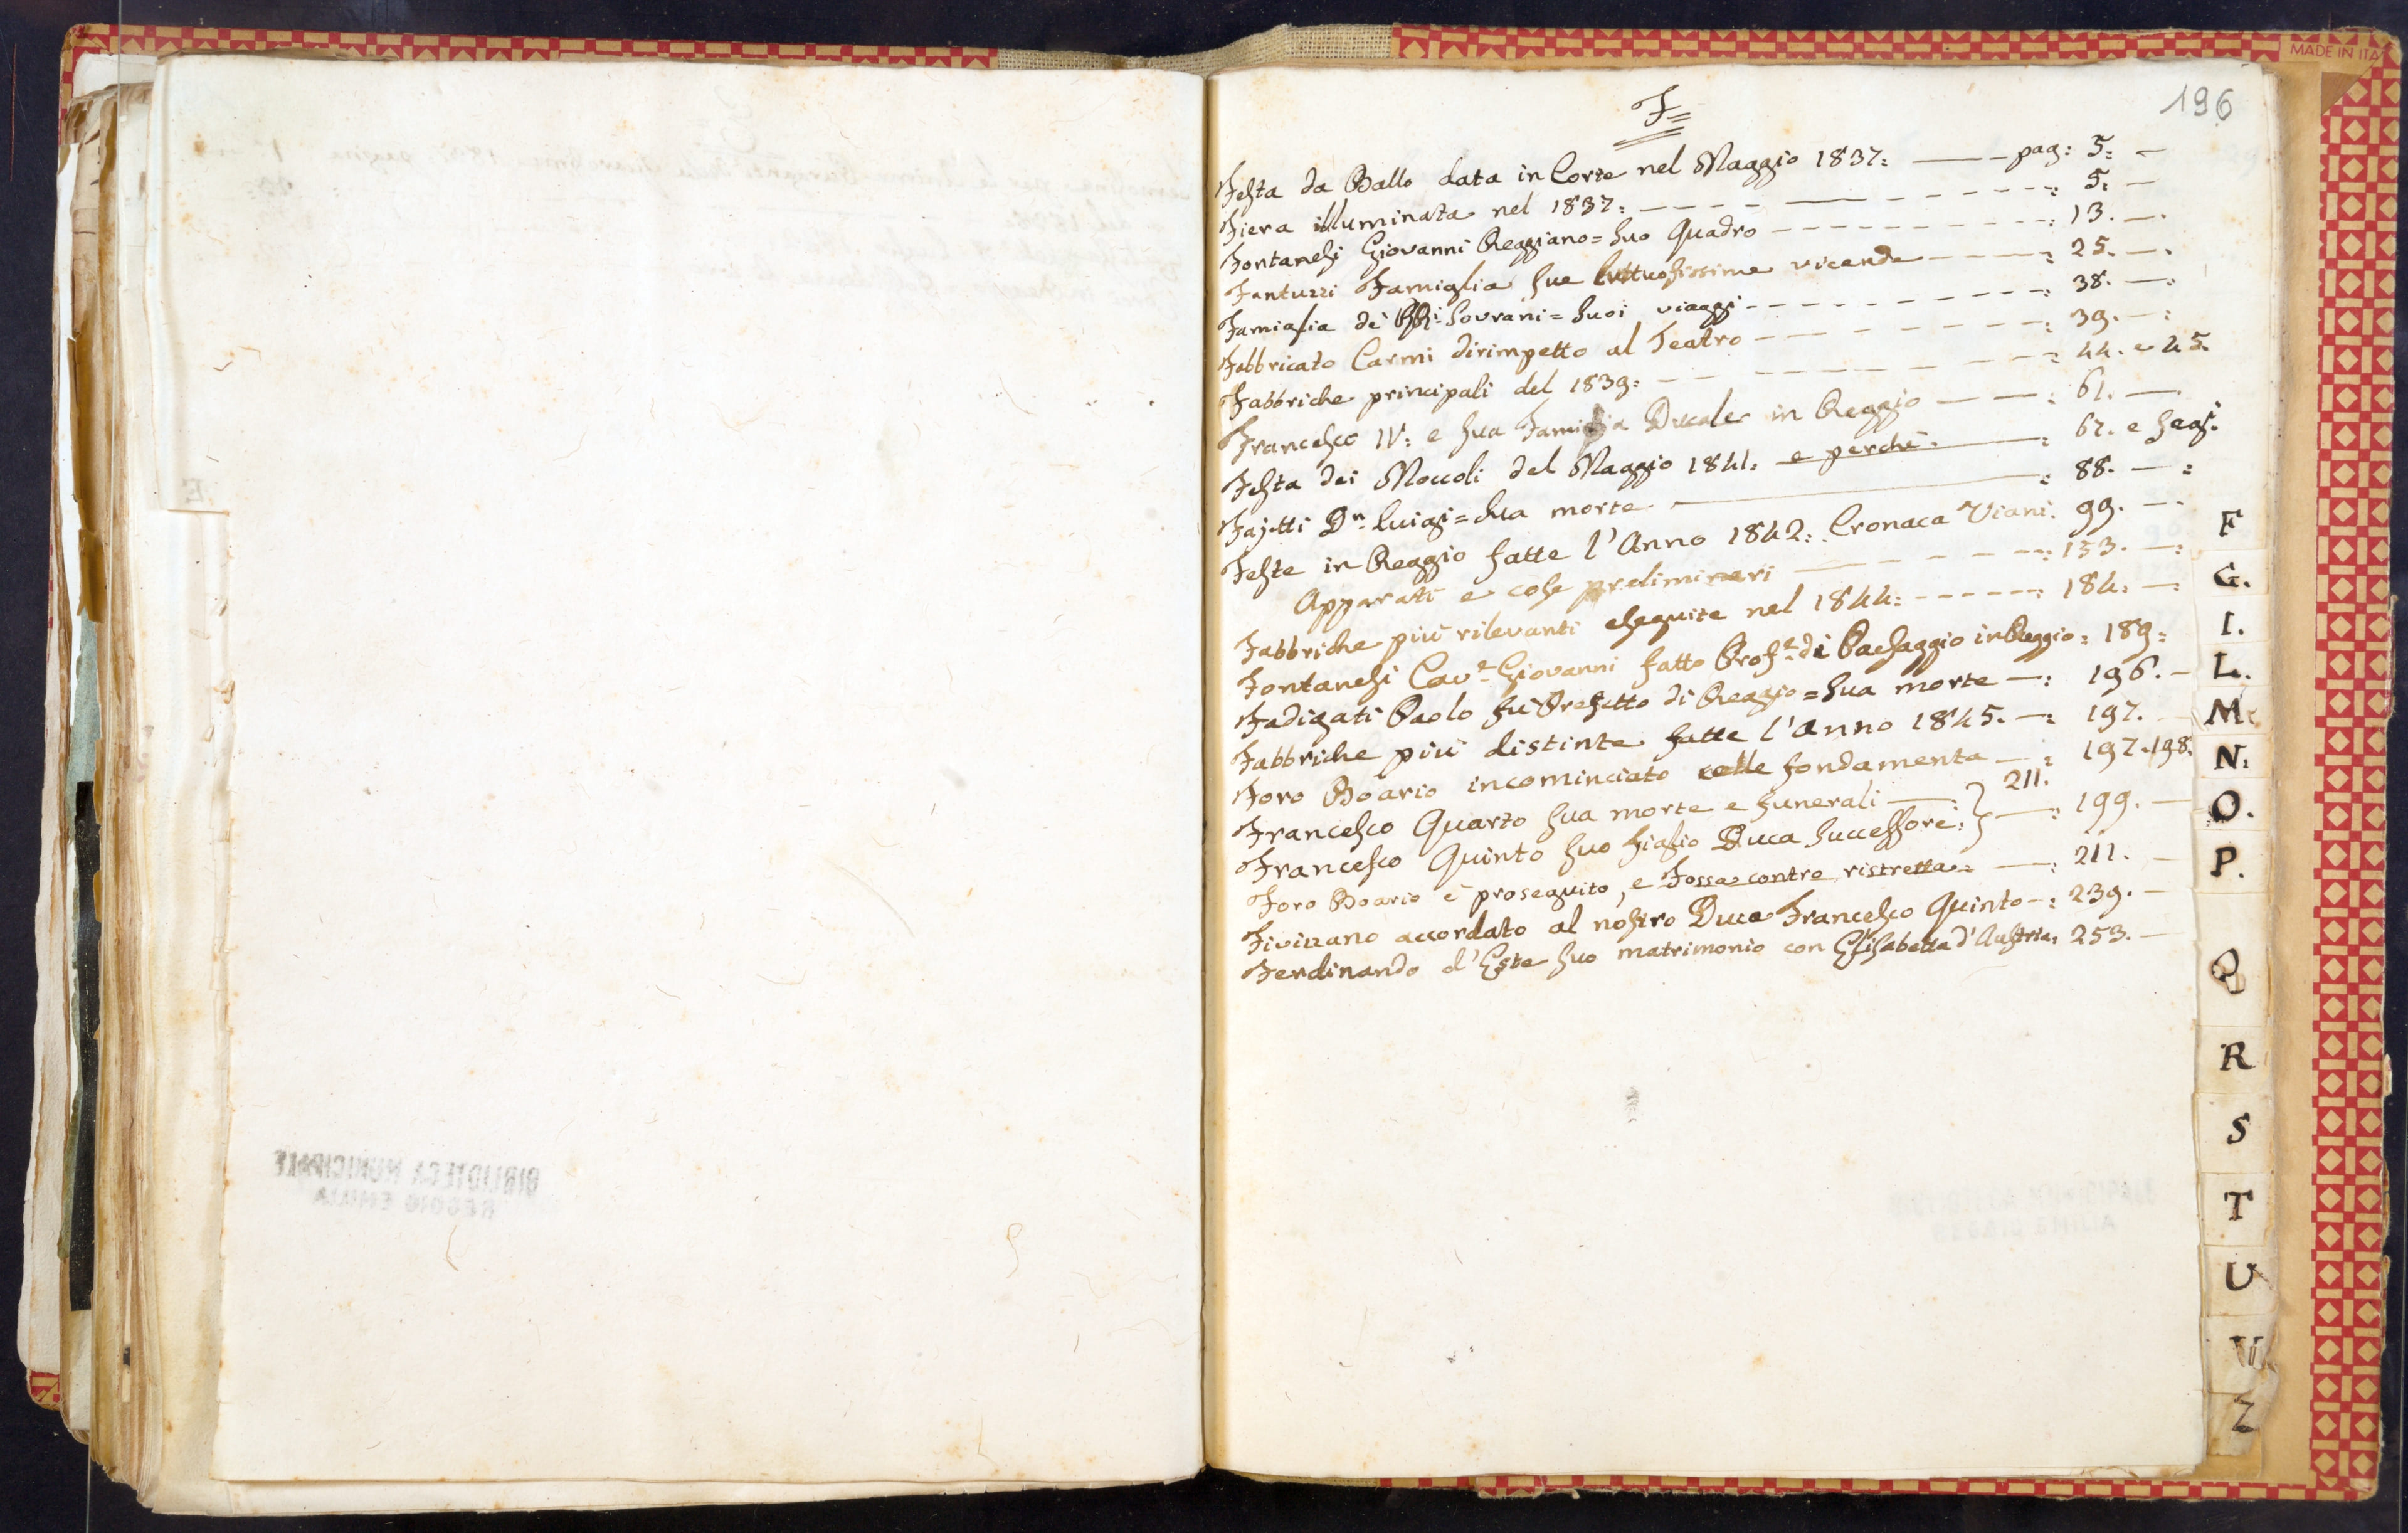 196
F=
Festa da Ballo data in Corte nel Maggio 1837: — pag: 5: —
Fiera illuminata nel 1837: — 5: —
Fontanesi Giovanni Reggiano = suo Quadro — : 13. —.
Fantuzzi Famiglia sue luttuosissime vicende — : 25. —.
Famiglia de' RRi Sovrani = suoi viaggi — : 38. — :
Fabbricato Carmi dirimpetto al Teatro — : 39. — :
Fabbriche principali del 1839: — : 44. e 45.
Francesco IV: e sua Famiglia Ducale in Reggio — : 61. —
Festa dei Moccoli del Maggio 1841: e perchè. — : 67. e seg.
Fajetti Dn. Luigi = sua morte — : 88. — :
Feste in Reggio fatte l'Anno 1842: Cronaca Viani. 99. —
Apparati e cose preliminari — : 153. — :
Fabbriche più rilevanti eseguite nel 1844: — : 184: — :
Fontanesi Cav.e Giovanni fatto Prof.e di Paesaggio in Reggio: 189:
Fadigati Paolo fu Prefetto di Reggio = sua morte — : 196. —
Fabbriche più distinte fatte l'anno 1845. — : 197. —
Foro Boario incominciato nelle fondamenta — : 197.198.
Francesco Quarto sua morte e funerali — : } 211.
Francesco Quinto suo figlio Duca successore: } — : 199. —
Foro Boario è proseguito, e Fossa contro ristretta: — : 211. —
Fivizzano accordato al nostro Duca Francesco Quinto — : 239. —
Ferdinando d'Este suo matrimonio con Elisabetta d'Austria: 253. —
F
G.
I.
L.
M.
N.
O.
P.
Q
R
S
T
U
V
Z
MADE IN ITA
BIBLIOTECA MUNICIPALE
REGGIO EMILIA